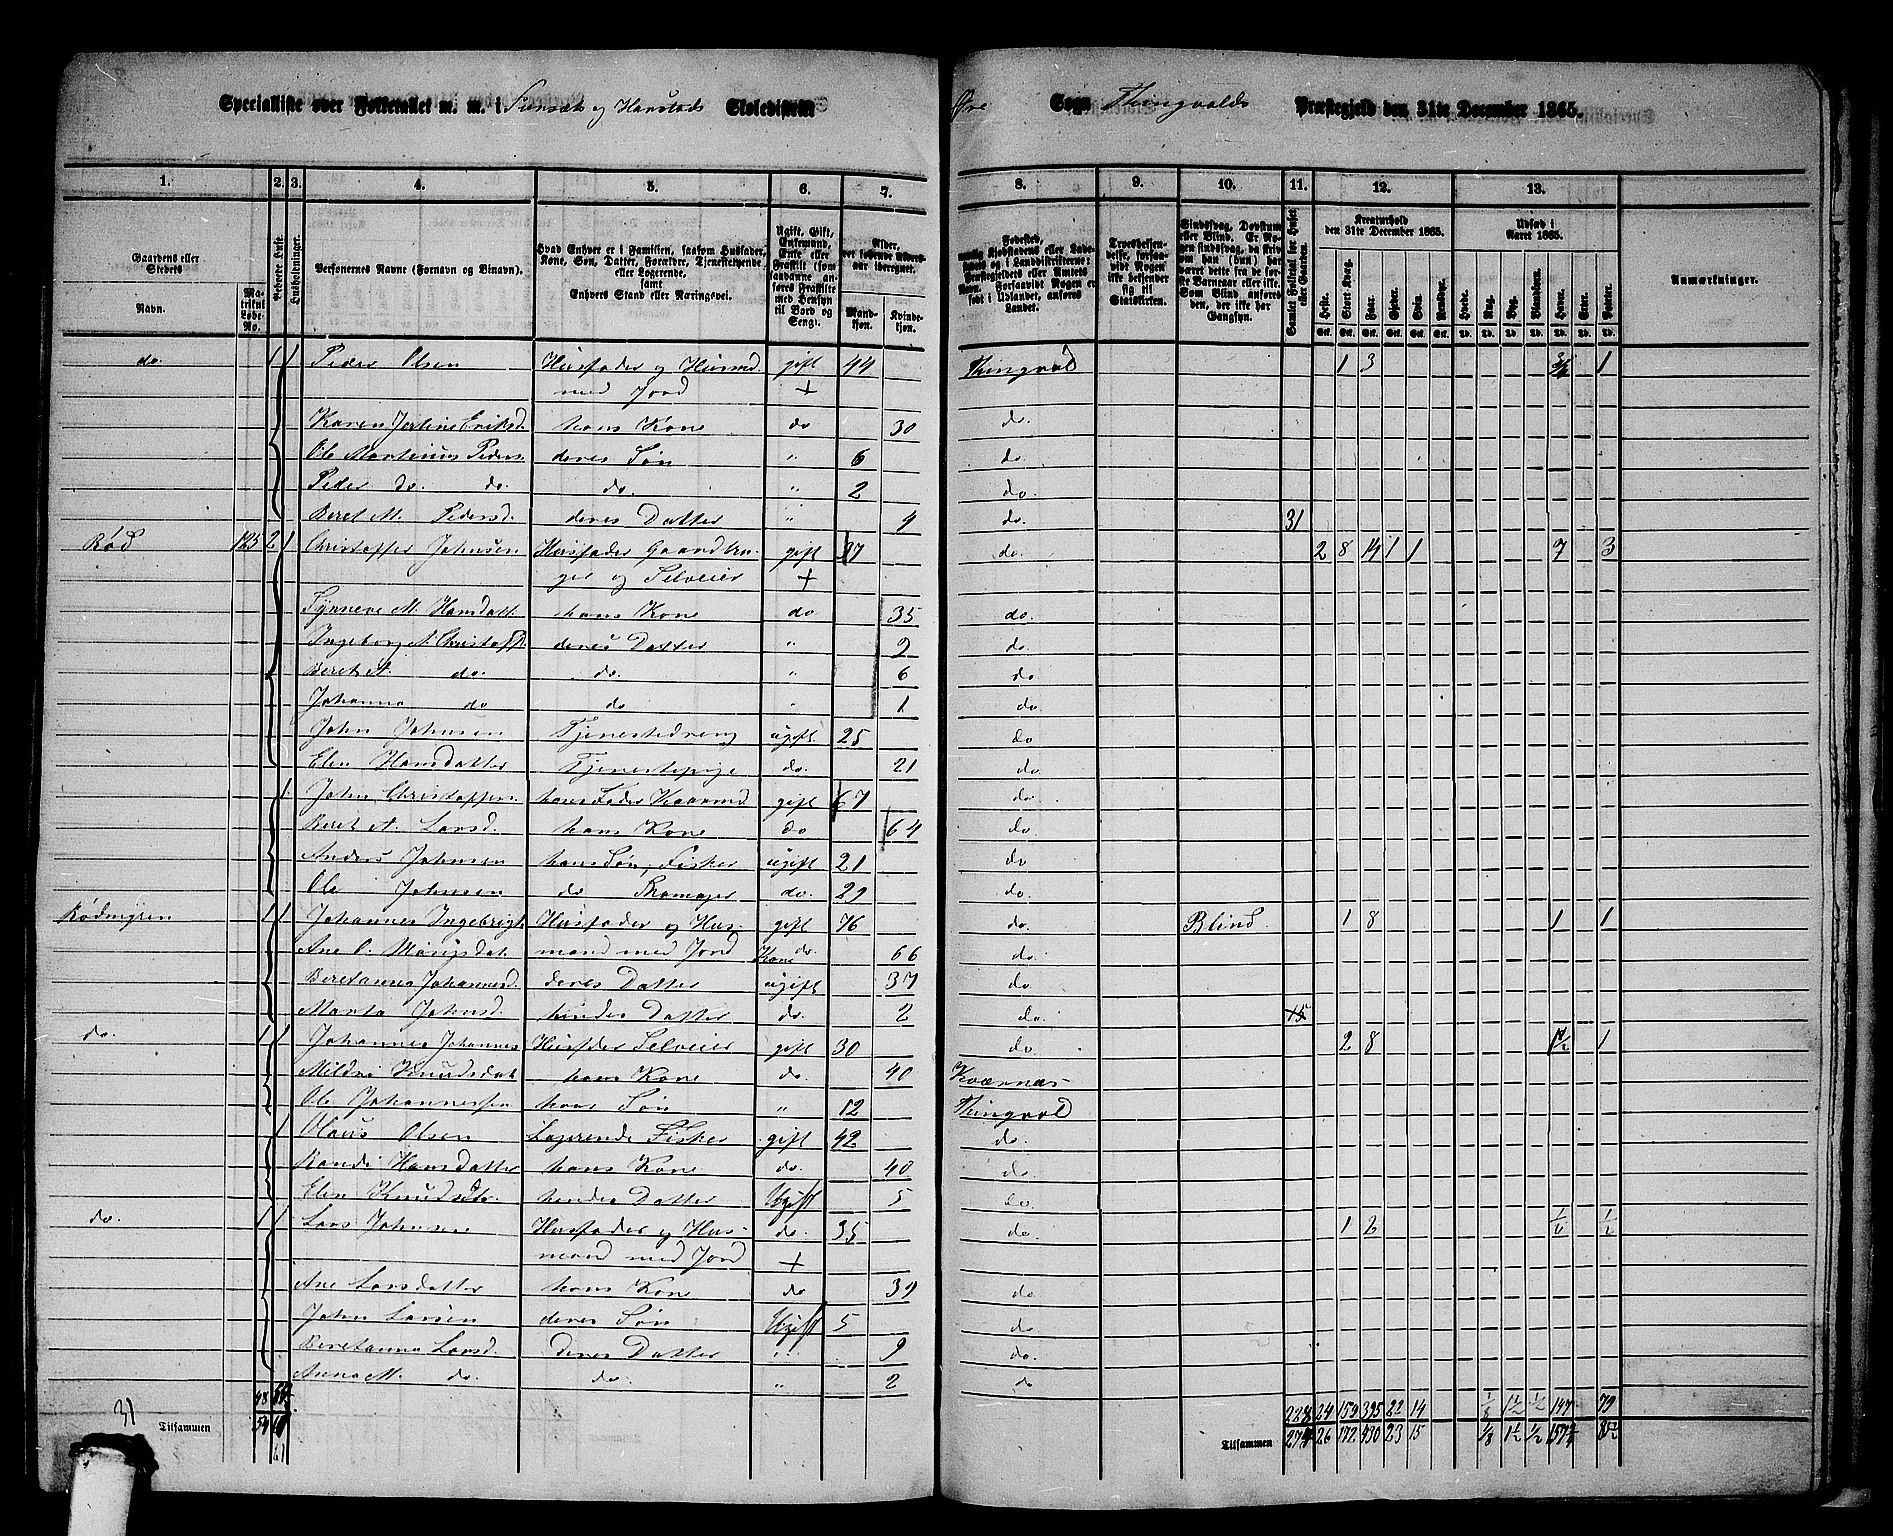 Specialliste over Folketallet m. m. i Harstads Skoledistrikt Øre Sogn Thingvolds Præstegjeld den 31te December 1865.
1. 2. 3. 4. 5. 6. 7. 8. 9. 10. 11. 12. 13.
Gaardens eller Stedets Navn. Matrikul Løbe-No. Beboede Huse. Husholdninger. Personernes Navne (Fornavn og Tilnavn).
Hvad Enhver er i Familien, saasom Husfader, Kone, Søn, Datter, Forældre, Tjenestetyende eller Logerende, samt Enhvers Stand eller Næringsvei.
Ugift, Gift, Enkemand, Enke eller Fraskilt
Mandkjøn. Kvindekjøn.
Kreaturhold den 31te December 1865.
Heste. Stort Kvæg. Faar. Gjeder. Svin. Rensdyr.
Udsæd i Aaret 1865.
Hvede. Rug. Byg. Blandkorn. Havre. Erter. Poteter.
Anmærkninger.
do. 1 1 Peder Olsen Husfader og Husmd. gift 44 Thingvold 1 3 3/4 1
med Jord +
Karen Eriksd. hans Kone do 30 do.
Ole Martinus Peders. deres Søn " 6 do.
Peder do. do. do. " 2 do.
Beret M. Pedersd. deres Datter " 4 do. 31
Rød 125 2 1 Christoffer Johnsen Husfader Gaardbru- gift 37 do. 2 8 14 1 1 7 3
ger og Selveier +
Synneve M. Hansdatt. hans Kone do 35 do.
Ingeborg A. Christoffd. deres Datter " 2 do
Beret A. do. do. " 6 do
Johanna do do " 1 do.
John Johnsen Tjenestedreng ugift 25 do
Elen Hansdatter Tjenestepige do. 21 do
1 John Christoffers. hans Fader Kaarmd gift 67 do.
Beret A. Larsd. hans Kone do 64 do
Anders Johnsen hans Søn, Fisker ugift 21 do
Ole Johnsen do Skomager do. 29 do.
Rødmyren 1 1 Johannes Ingebrigts. Husfader og Hus- gift 76 do. Blind. 1 8 1 1
Ane O. mand med Jord Kone do. 66 do.
Beretanna Johannesd. deres Datter ugift 37 do
Marta Johnsd. hendes Datter do. 2 do. 15
do. 1 1 Johannes Johannes Husfader Selveier gift 30 do. 2 8 1½ 1
Mildri Knudsdat. hans Kone do. 40 Kværnæs
Ole Johannessen hans Søn " 12 Thingvold
1 Olaus Olsen Logerende Fisker gift 42 do.
Randi Hansdatter hans Kone do. 40 do.
Elen Knudsdtr. hendes Datter Ugift 5 do
do. 1 1 Lars Johnsen Husfader og Hus- do. 35 do. 1 6 ½
mand med Jord +
Ane Larsdatter hans Kone do 39 do
John Larsen deres Søn Ugift 5 do
Beretanna Larsd. deres Datter " 9 do.
Anna M. do. do. " 2 do
48
228 24 159 395 22 14 1/8 1½ ½ 147 79
31 Tilsammen 54
Tilsammen 274 26 172 430 23 15 1/8 1½ ½
61